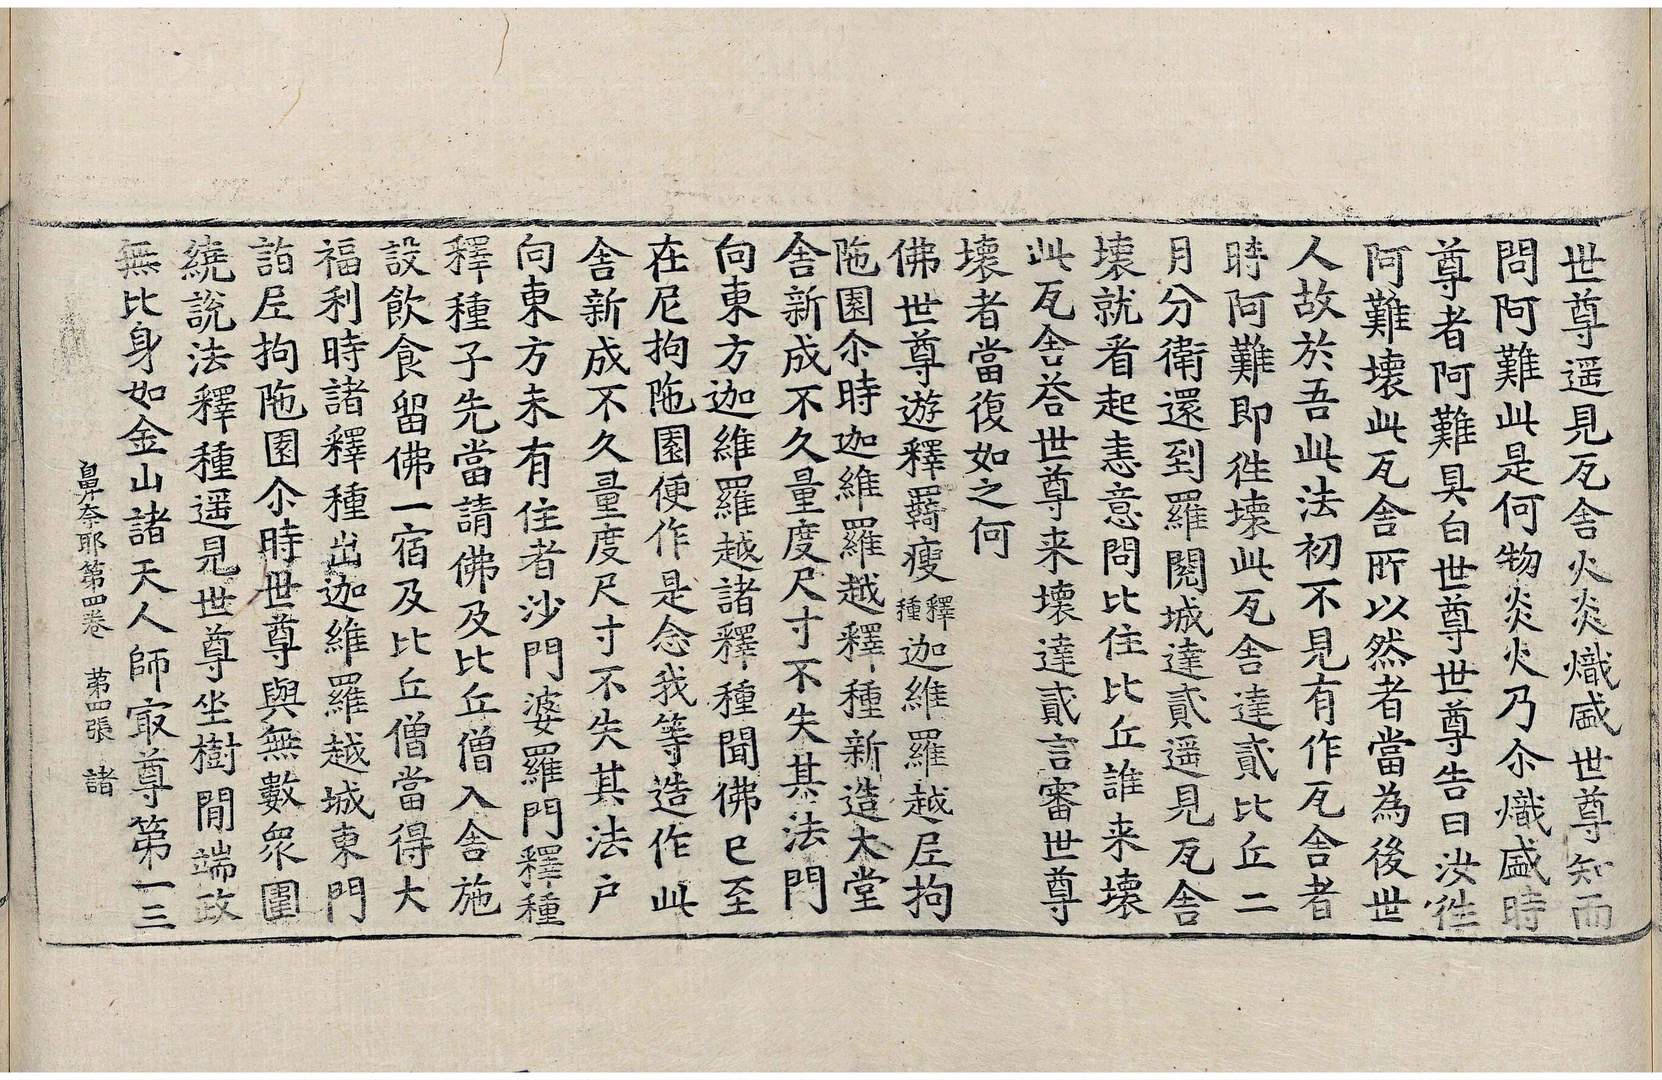 世尊遥見瓦舍火炎熾盛世尊知而
問阿難此是何物炎火乃尒熾盛時
尊者阿難具白世尊世尊告曰汝徃
阿難壞此瓦舍所以然者當為後世
人故於吾此法初不見有作瓦舍者
時阿難即徃壞此瓦舍達貳比丘二
月分衛還到羅閱城達貳遥見瓦舍
壞就看起恚意問比住比丘誰来壞
此瓦舍荅世尊来壞達貳言審世尊
壞者當復如之何
佛世尊遊釋羇瘦釋種迦維羅越尼拘
陁園尒時迦維羅越釋種新造大堂
舍新成不久量度尺寸不失其法門
向東方迦維羅越諸釋種聞佛已至
在尼拘陁園便作是念我等造作此
舍新成不久量度尺寸不失其法户
向東方未有住者沙門婆羅門釋種
釋種子先當請佛及比丘僧入舍施
設飲食留佛一宿及比丘僧當得大
福利時諸釋種出迦維羅越城東門
詣尼拘陁園尒時世尊與無數衆圍
繞說法釋種遥見世尊坐樹閒端政
無比身如金山諸天人師㝡尊第一三
鼻奈耶第四卷　第四張　諸